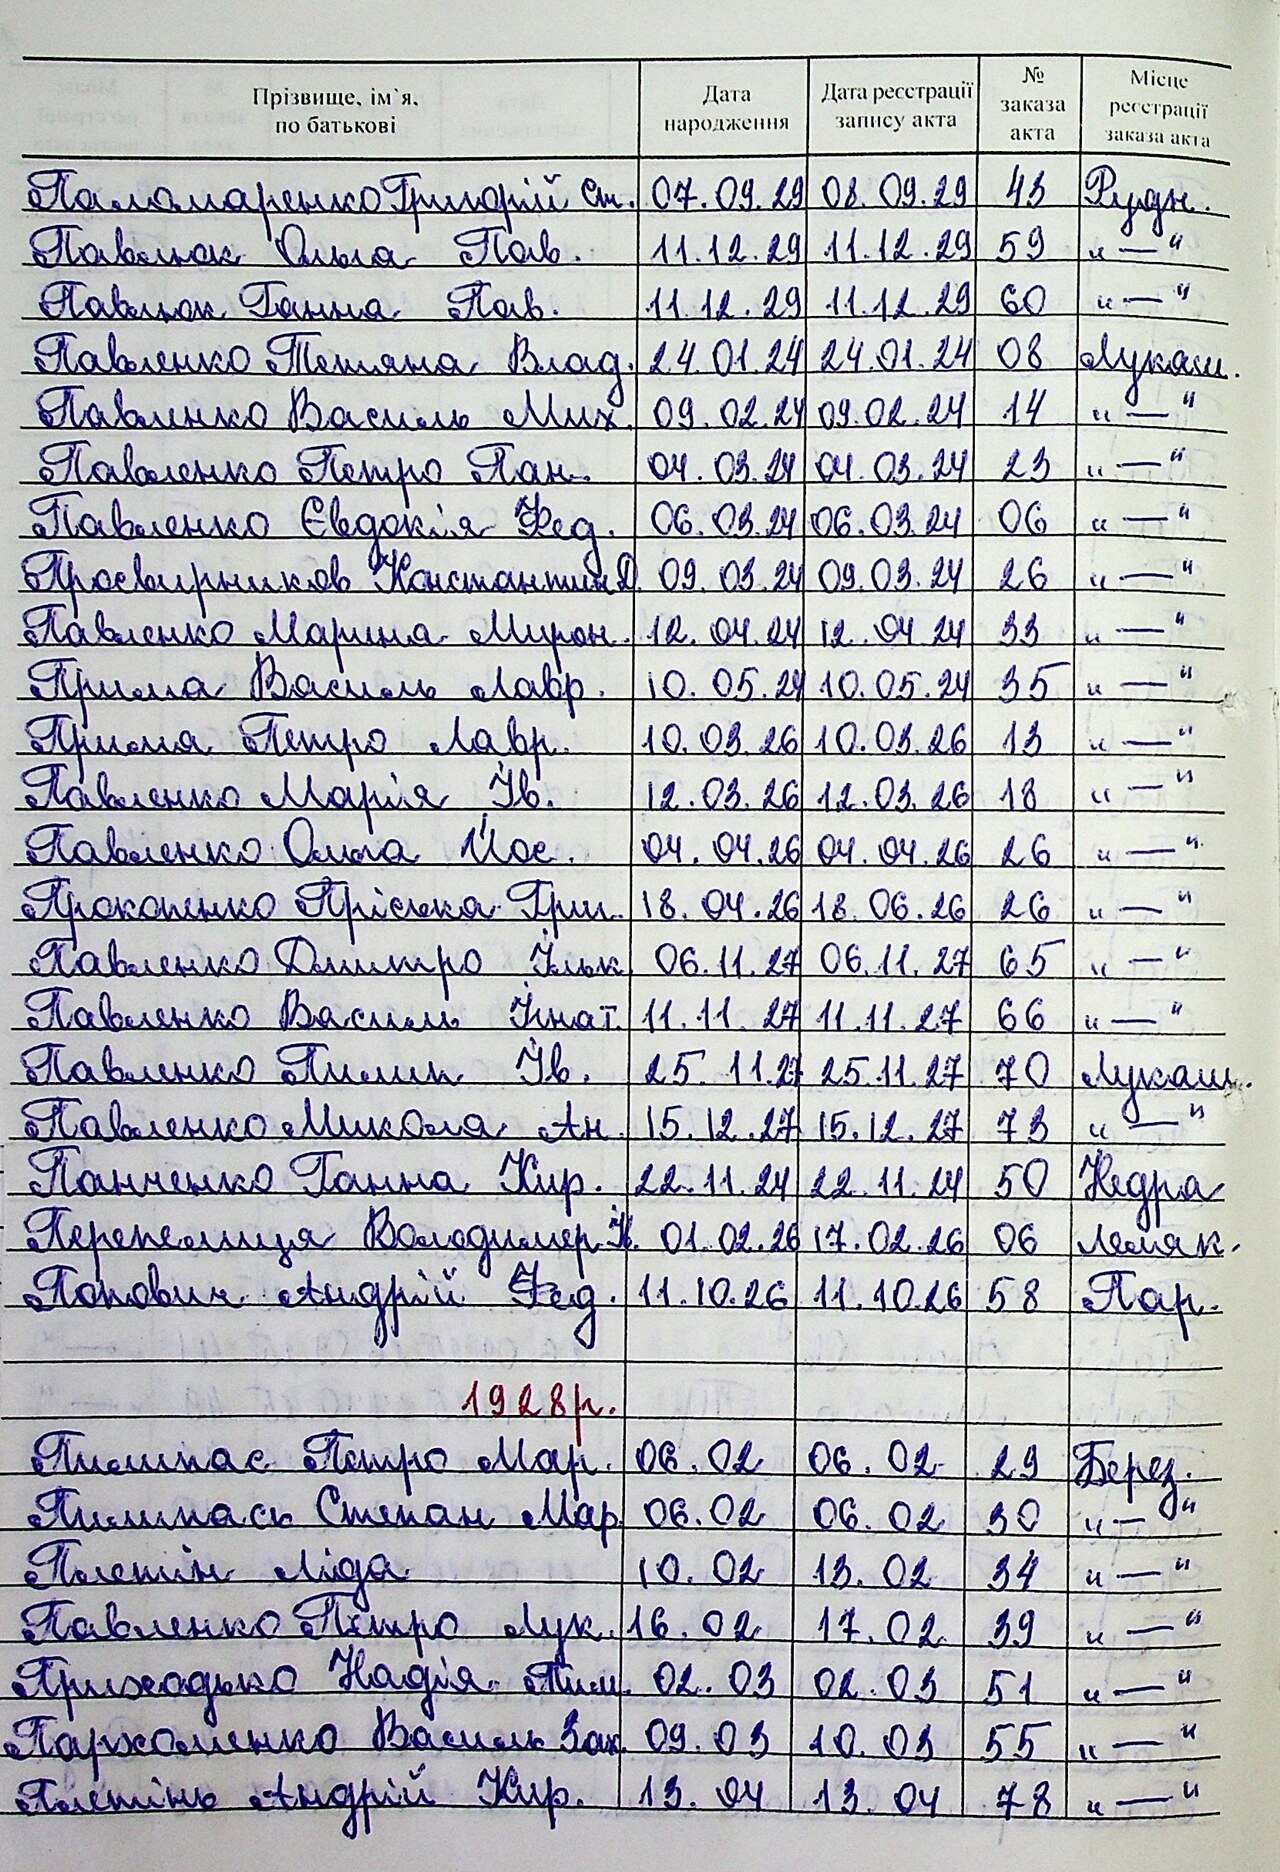 Прізвище, ім`я, по батькові Дата народження Дата реєстрації запису акта № заказа акта Місце реєстрації заказа акта
Паламаренко Григорій Ст. 07.09.29 08.09.29 43 Рудн.
Павлюк Ольга Пав. 11.12.29 11.12.29 59 „—"
Павлюк Ганна Пав. 11.12.29 11.12.29 60 „—"
Павленко Тетяна Влад. 24.01.24 24.01.24 08 Лукаш.
Павленко Василь Мих. 09.02.24 09.02.24 14 „—"
Павленко Петро Пан. 04.03.24 04.03.24 23 „—"
Павленко Євдокія Фед. 06.03.24 06.03.24 06 „—"
Просвирников Константин Д. 09.03.24 09.03.24 26 „—"
Павленко Марина Мирон. 12.04.24 12.04.24 33 „—"
Прима Василь Лавр. 10.05.24 10.05.24 35 „—"
Прима Петро Лавр. 10.03.26 10.03.26 13 „—"
Павленко Марія Ів. 12.03.26 12.03.26 18 „—"
Павленко Ольга Йос. 04.04.26 04.04.26 26 „—"
Прокопенко Пріська Гри. 18.04.26 18.06.26 26 „—"
Павленко Дмитро Ільк 06.11.27 06.11.27 65 „—"
Павленко Василь Ігнат. 11.11.27 11.11.27 66 „—"
Павленко Пилип Ів. 25.11.27 25.11.27 70 Лукаш.
Павленко Микола Ан. 15.12.27 15.12.27 73 „—"
Панченко Ганна Кир. 22.11.24 22.11.24 50 Недра
Перепелиця Володимер К. 01.02.26 17.02.26 06 Лемяк.
Попович Андрій Фед. 11.10.26 11.10.26 58 Пар.
1928р.
Пилипас Петро Мар. 06.02 06.02 29 Берез.
Пилипась Степан Мар. 06.02 06.02 30 „—"
Плетін Ліда 10.02 13.02 34 „—"
Павленко Петро Лук. 16.02 17.02 39 „—"
Приходько Надія Пим. 02.03 02.03 51 „—"
Пархоменко Василь Зах. 09.03 10.03 55 „—"
Плетінь Андрій Кир. 13.04 13.04 78 „—"